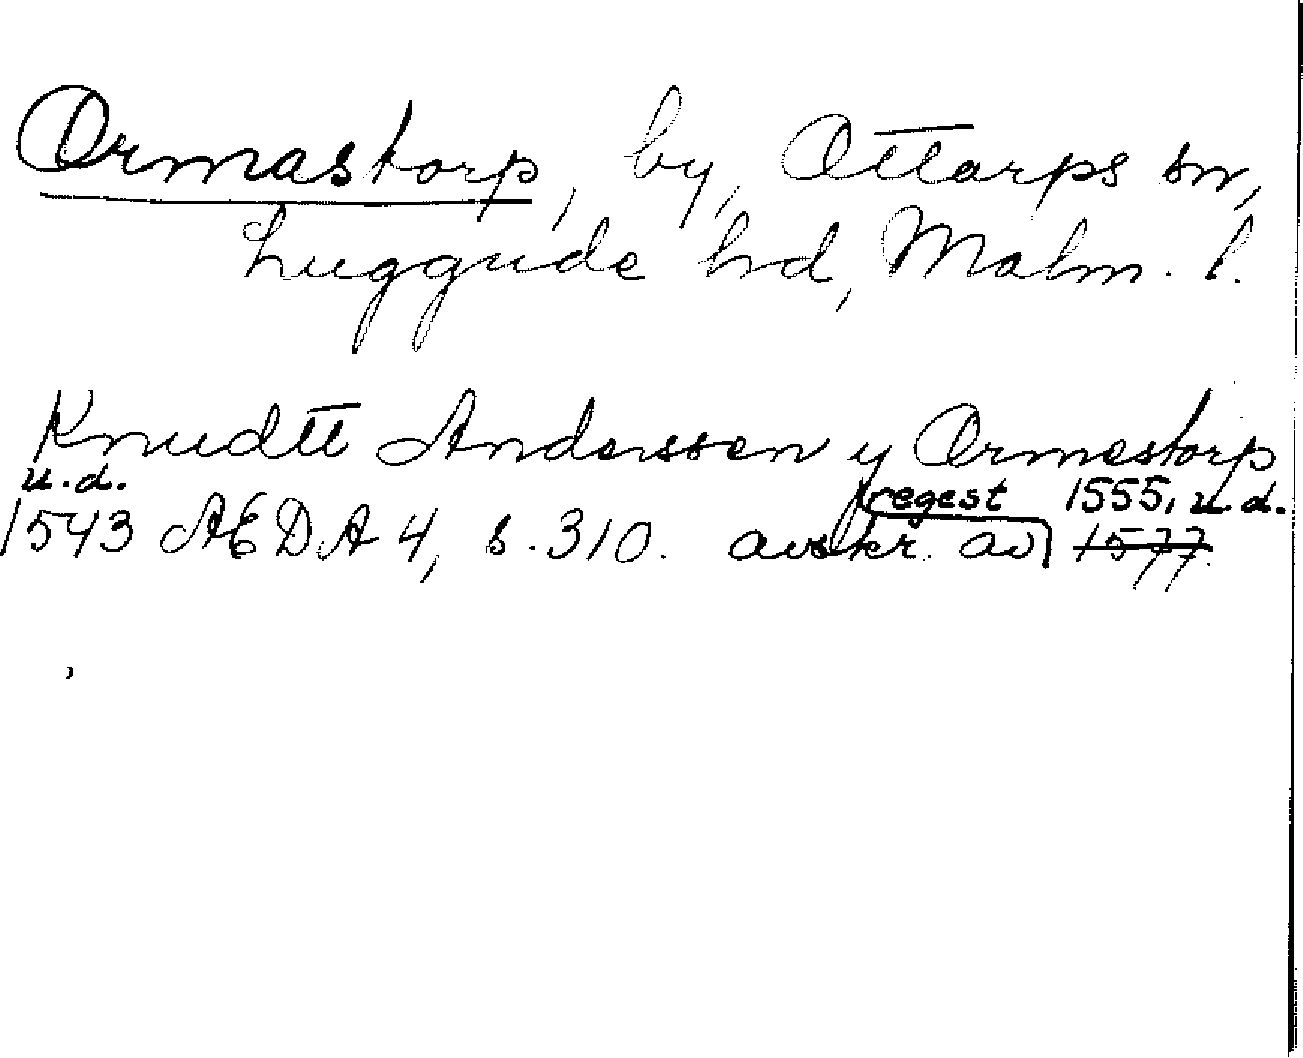 Ormastorp, by, Ottarps sn,
Luggude hd, Malm. l.
Knudtt Anderssen y Ormestorp
u.d. regest 1555, u.d.
1543 AEDA 4, s. 310. avskr. av 1577.